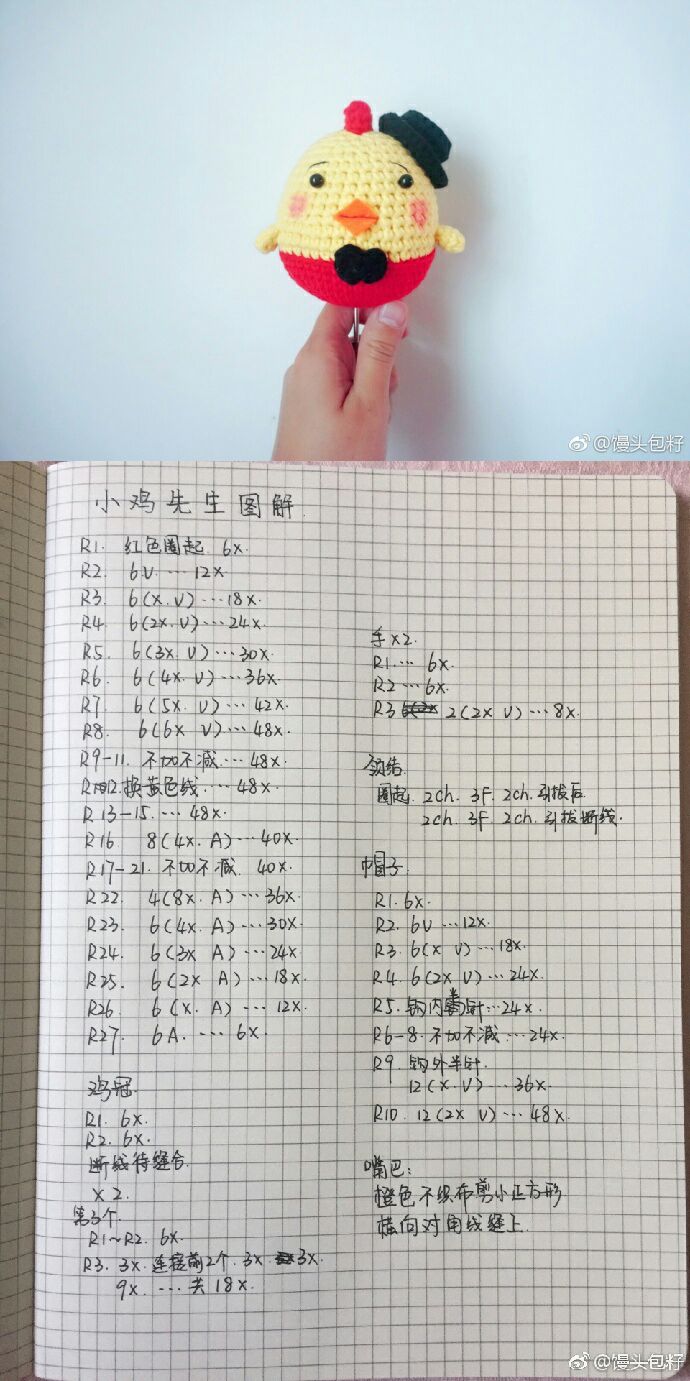 @馒头包籽
小鸡先生图解.
R1. 红色圈起. 6x.
R2. 6V. …12x.
R3. 6(x. V)…18x.
R4. 6(2x. V)…24x.
R5. 6(3x. V)…30x.
R6. 6(4x. V)…36x.
R7 6(5x. V)…42x.
R8. 6(6x V)…48x.
R9-11. 不加不减…48x.
R12. 换黄色线…48x.
R13-15. …48x.
R16. 8(4x. A)…40x.
R17-21. 不加不减. 40x.
R22. 4(8x. A)…36x.
R23. 6(4x. A)…30x.
R24. 6(3x A)…24x
R25. 6(2x A)…18x.
R26 6(x. A)…12x
R27. 6A. …6x.
鸡冠.
R1. 6x.
R2. 6x.
断线待缝合.
x2.
第3个.
R1~R2. 6x.
R3. 3x. 连接前2个. 3x. 3x.
9x. …共18x.
手x2.
R1… 6x.
R2…6x.
R3 2(2x V)…8x.
领结.
圈起. 2ch. 3F. 2ch. 引拔后
2ch. 3F. 2ch. 引拔断线.
帽子:
R1. 6x.
R2. 6V…12x.
R3. 6(x V)…18x.
R4. 6(2x V)…24x.
R5. 钩内半针…24x.
R6-8. 不加不减…24x.
R9. 钩外半针.
12(x. V)…36x.
R10. 12(2x V)…48x.
嘴巴:
橙色不织布剪小正方形
横向对用线缝上.
@馒头包籽